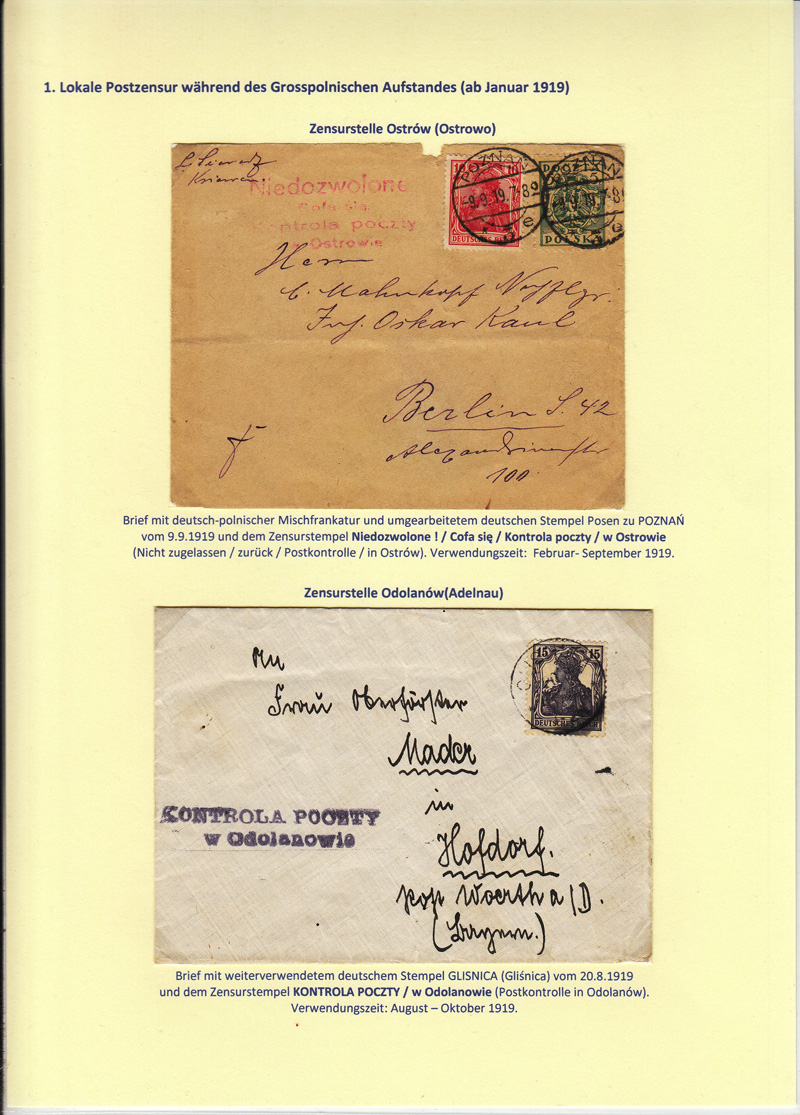 1. Lokale Postzensur während des Grosspolnischen Aufstandes (ab Januar 1919)
Zensurstelle Ostrów (Ostrowo)
Niedozwolone
Cofa się
Kontrola poczty
Ostrowie
10
POZNAŃ
-9.9.19.7-8
DEUTSCHES
POCZTA
POLSKA
Herrn
Oskar Kaul
Berlin S. 42
100
Brief mit deutsch-polnischer Mischfrankatur und umgearbeitetem deutschen Stempel Posen zu POZNAŃ
vom 9.9.1919 und dem Zensurstempel Niedozwolone ! / Cofa się / Kontrola poczty / w Ostrowie
(Nicht zugelassen / zurück / Postkontrolle / in Ostrów). Verwendungszeit: Februar- September 1919.
Zensurstelle Odolanów(Adelnau)
15 15
DEUTSCHES
An
Frau Oberförster
Mader
in
Hofdorf.
Post Woerth a/D.
(Bayern.)
KONTROLA POCZTY
w Odolanowie
Brief mit weiterverwendetem deutschem Stempel GLISNICA (Gliśnica) vom 20.8.1919
und dem Zensurstempel KONTROLA POCZTY / w Odolanowie (Postkontrolle in Odolanów).
Verwendungszeit: August – Oktober 1919.